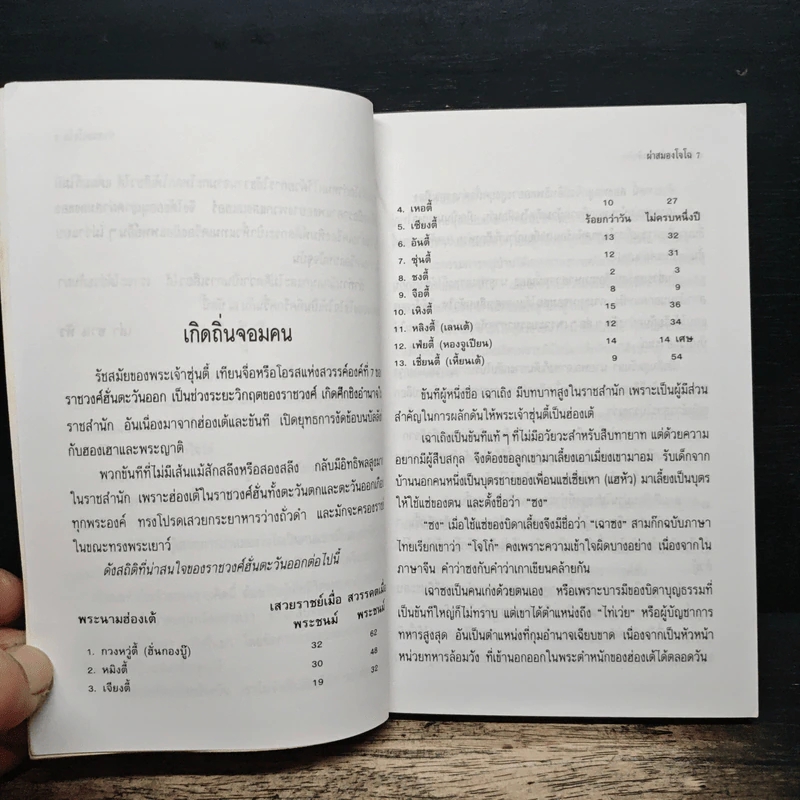 เกิดถิ่นจอมคน
รัชสมัยของพระเจ้าซุ่นตี้ เทียนจื่อหรือโอรสแห่งสวรรค์องค์ที่ 7 ของ
ราชวงศ์ฮั่นตะวันออก เป็นช่วงระยะวิกฤตของราชวงศ์ เกิดศึกชิงอำนาจใน
ราชสำนัก อันเนื่องมาจากฮ่องเต้และขันที เปิดยุทธการงัดข้อบนบัลลังก์
กับฮองเฮาและพระญาติ
พวกขันทีที่ไม่มีเส้นแม้สักสลึงหรือสองสลึง กลับมีอิทธิพลสูงมาก
ในราชสำนัก เพราะฮ่องเต้ในราชวงศ์ฮั่นทั้งตะวันตกและตะวันออกเกือบ
ทุกพระองค์ ทรงโปรดเสวยกระยาหารว่างถั่วดำ และมักจะครองราชย์
ในขณะทรงพระเยาว์
ดังสถิติที่น่าสนใจของราชวงศ์ฮั่นตะวันออกต่อไปนี้
พระนามฮ่องเต้ เสวยราชย์เมื่อ สวรรคตเมื่อ
พระชนม์ พระชนม์
1. กวงหวู่ตี้ (ฮั่นกองบู๊) 32 62
2. หมิงตี้ 30 48
3. เจียงตี้ 19 32
ผ่าสมองโจโฉ 7
4. เหอตี้ 10 27
5. เซียงตี้ ร้อยกว่าวัน ไม่ครบหนึ่งปี
6. อันตี้ 13 32
7. ซุ่นตี้ 12 31
8. ชงตี้ 2 3
9. จือตี้ 8 9
10. เหิงตี้ 15 36
11. หลิงตี้ (เลนเต้) 12 34
12. เฟ่ยตี้ (หองจูเปียน) 14 14 เศษ
13. เซี่ยนตี้ (เหี้ยนเต้) 9 54
ขันทีผู้หนึ่งชื่อ เฉาเถิง มีบทบาทสูงในราชสำนัก เพราะเป็นผู้มีส่วน
สำคัญในการผลักดันให้พระเจ้าซุ่นตี้เป็นฮ่องเต้
เฉาเถิงเป็นขันทีแท้ ๆ ที่ไม่มีอวัยวะสำหรับสืบทายาท แต่ด้วยความ
อยากมีผู้สืบสกุล จึงต้องขอลูกเขามาเลี้ยงเอาเมี่ยงเขามาอม รับเด็กจาก
บ้านนอกคนหนึ่งเป็นบุตรชายของเพื่อนแซ่เซี่ยเหา (แฮหัว) มาเลี้ยงเป็นบุตร
ให้ใช้แซ่ของตน และตั้งชื่อว่า "ซง"
"ซง" เมื่อใช้แซ่ของบิดาเลี้ยงจึงมีชื่อว่า "เฉาซง" สามก๊กฉบับภาษา
ไทยเรียกเขาว่า "โจโก๋" คงเพราะความเข้าใจผิดบางอย่าง เนื่องจากใน
ภาษาจีน คำว่าซงกับคำว่าเกาเขียนคล้ายกัน
เฉาซงเป็นคนเก่งด้วยตนเอง หรือเพราะบารมีของบิดาบุญธรรมที่
เป็นขันทีใหญ่ก็ไม่ทราบ แต่เขาได้ตำแหน่งถึง "ไท่เว่ย" หรือผู้บัญชาการ
ทหารสูงสุด อันเป็นตำแหน่งที่กุมอำนาจเฉียบขาด เนื่องจากเป็นหัวหน้า
หน่วยทหารล้อมวัง ที่เข้านอกออกในพระตำหนักของฮ่องเต้ได้ตลอดวัน